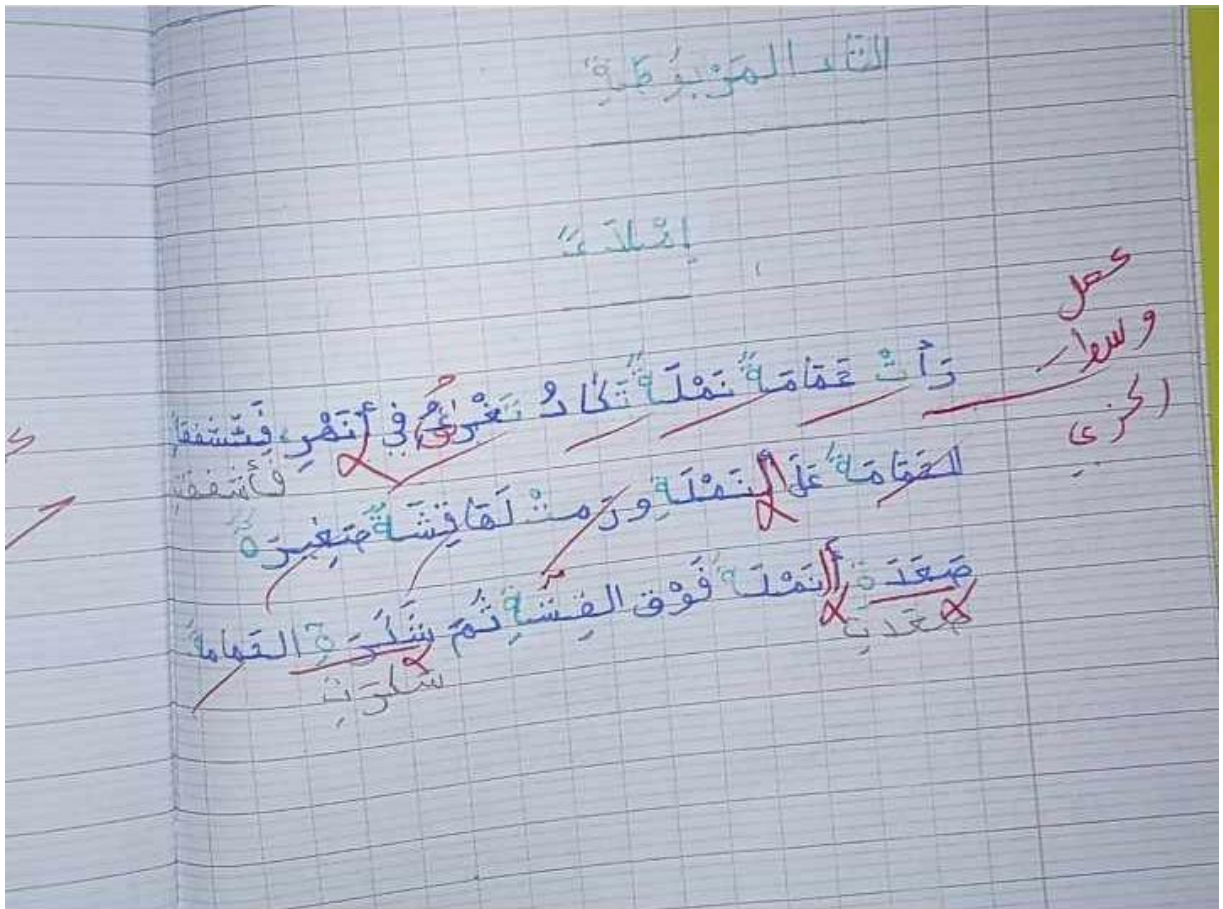 التاء المَرْبُوطَةِ
إمْلاَءٌ
رَأتْ حَمَامَةٌ نَمْلَةً تَكادُ تَغْرَقُ في أنَهْرِ، فَتشفقة
فأشفقت
الحَمَامَةُ عَلَ النَمْلَةِ ورَمتْ لَهَا قِشَةً صَغِيرَةً
صَعَدَةِ أنَمْلَةُ فَوْق القِشَّةِ ثُمَ شَكَرَةِ الحَمامةَ
صَعَدتِ
شَكرَتِ